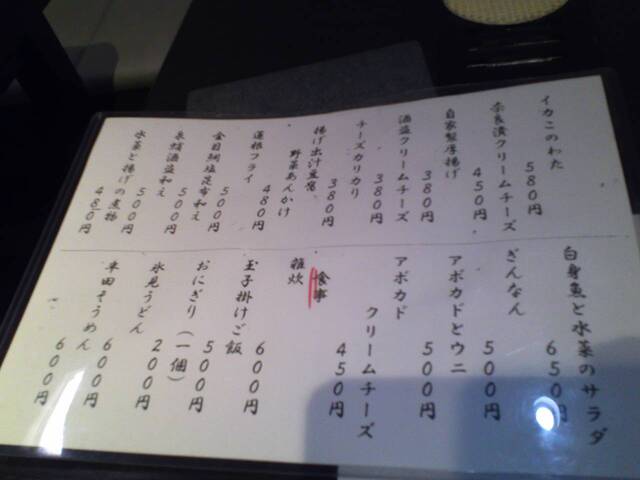 イカこのわた
580円
奈良漬クリームチーズ
450円
自家製厚揚げ
380円
酒盗クリームチーズ
380円
チーズカリカリ
380円
揚げ出汁豆腐、
野菜あんかけ
480円
蓮根フライ
500円
金目鯛塩昆布和え
500円
酒盗和え
500円
水菜と揚げの煮物
480円
白身魚と水菜のサラダ
650円
ぎんなん
500円
アボカドとウニ
500円
アボカド
クリームチーズ
450円
食事
雑炊
600円
玉子掛けご飯
500円
おにぎり(一個)
200円
氷見うどん
600円
半田そうめん
600円